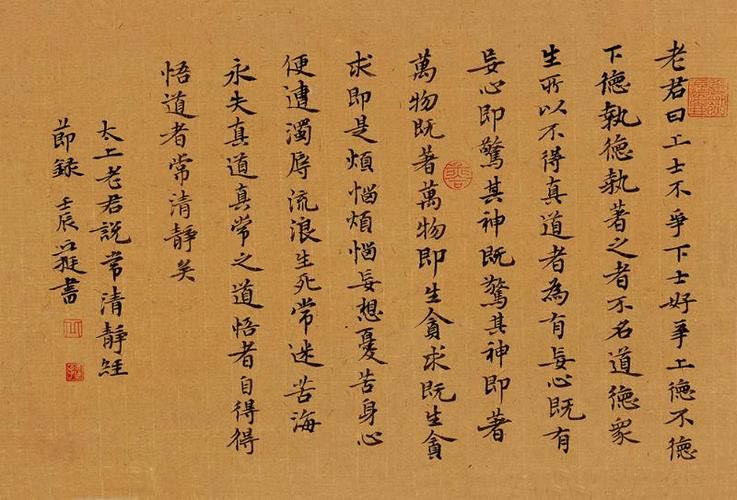 老君曰上士不爭下士好爭上德不德
下德執德執著之者不名道德眾
生所以不得真道者為有妄心既有
妄心即驚其神既驚其神即著
萬物既著萬物即生貪求既生貪
求即是煩惱煩惱妄想憂苦身心
便遭濁辱流浪生死常迷苦海
永失真道真常之道悟者自得得
悟道者常清靜矣
太上老君說常清靜經
節録 壬辰 書